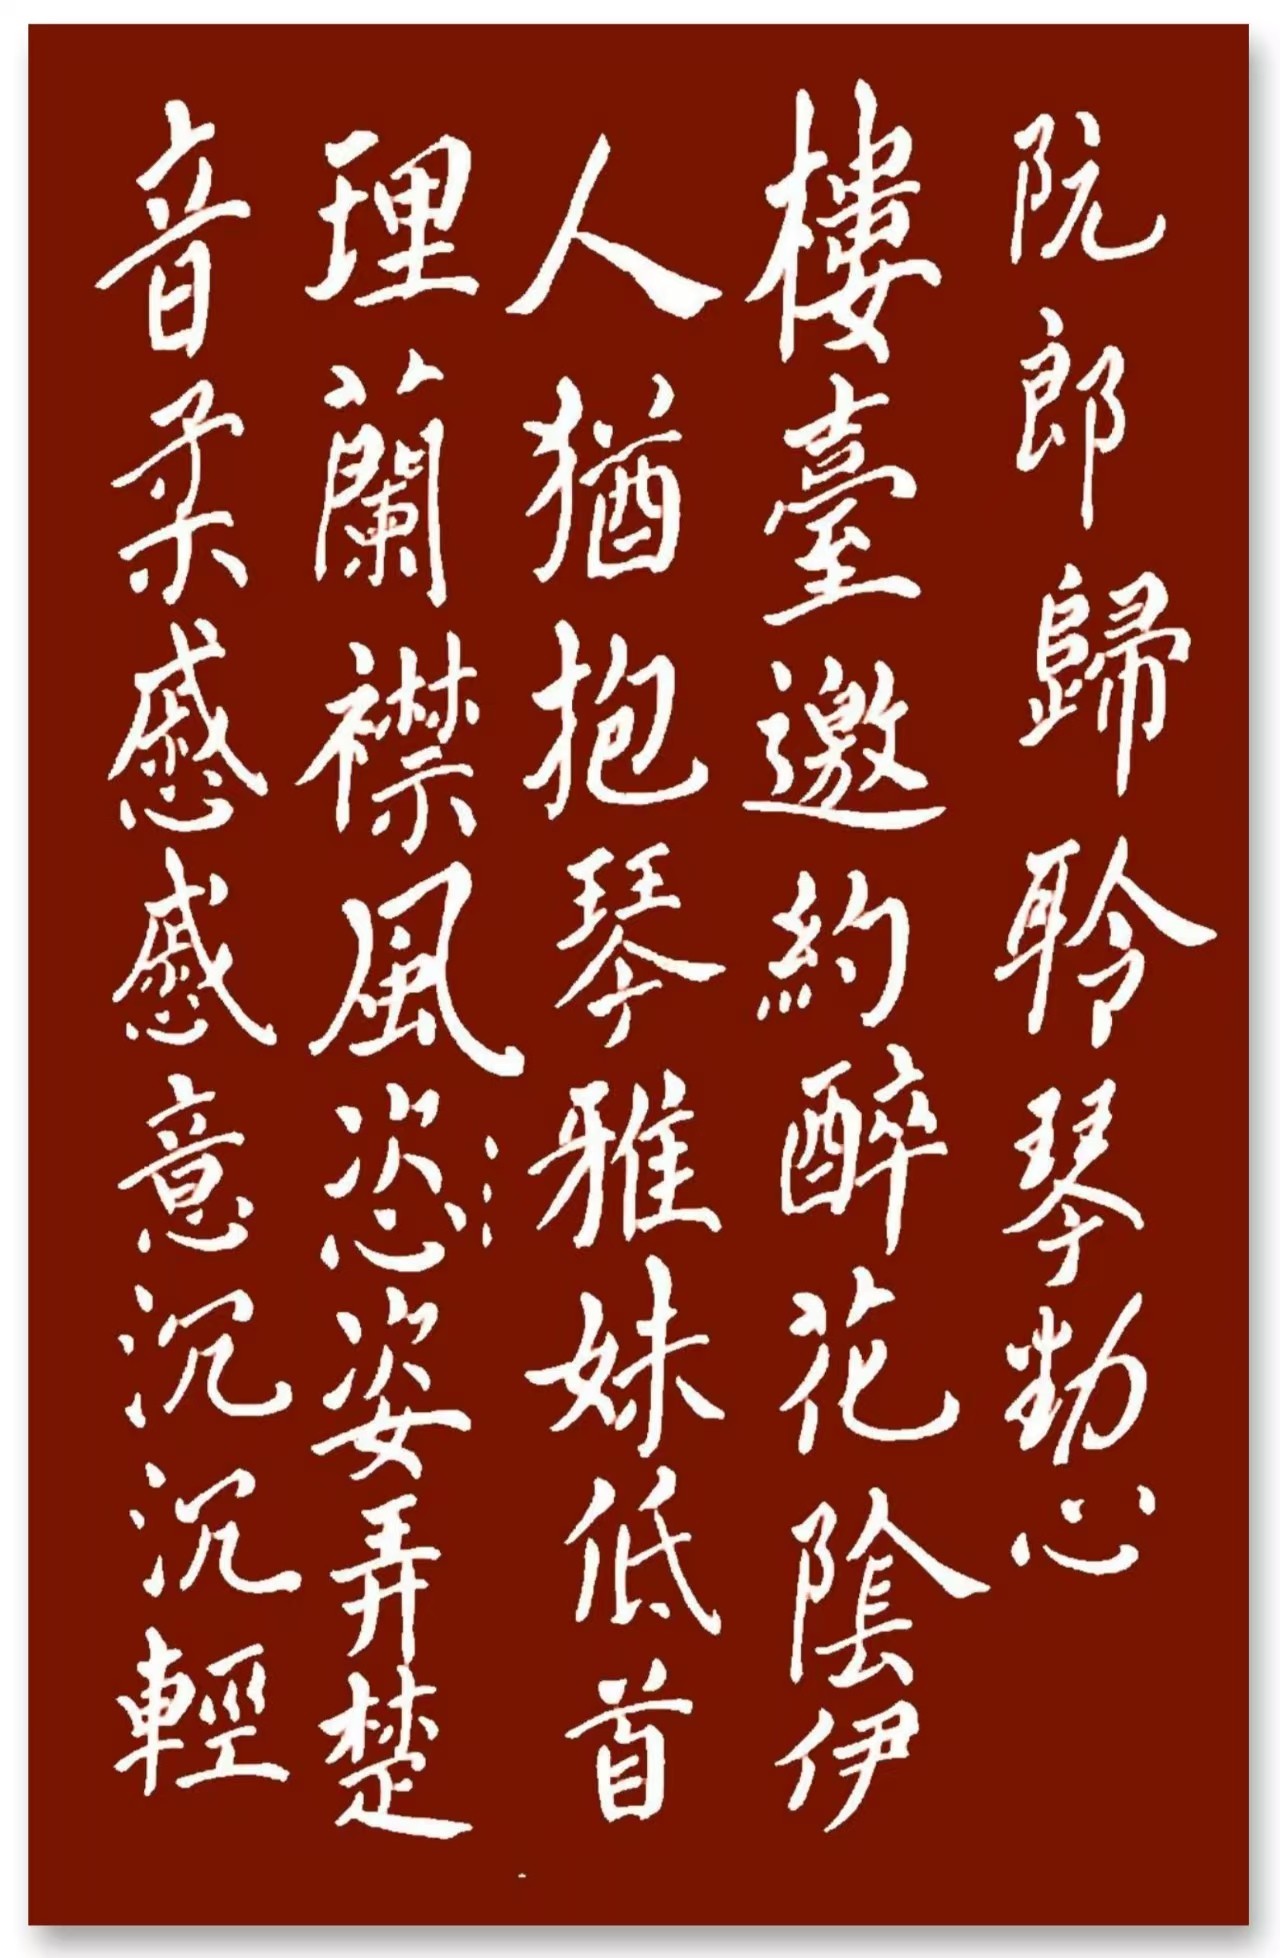 阮郎歸聆琴動心
樓臺邀約醉花陰伊
人猶抱琴雅妹低首
理蘭襟風恣姿弄楚
音柔慼慼意沉沉輕